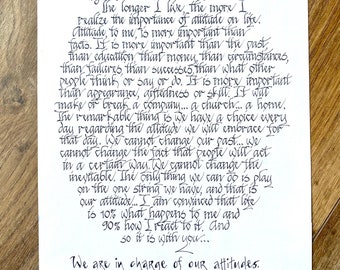 The longer I live, the more I
realize the importance of attitude on life.
Attitude, to me, is more important than
facts. It is more important than the past,
than education, than money, than circumstances,
than failures, than successes, than what other
people think or say or do. It is more important
than appearance, giftedness or skill. It will
make or break a company... a church... a home.
The remarkable thing is we have a choice every
day regarding the attitude we will embrace for
that day. We cannot change our past... we
cannot change the fact that people will act
in a certain way. We cannot change the
inevitable. The only thing we can do is play
on the one string we have, and that is
our attitude... I am convinced that life
is 10% what happens to me and
90% how I react to it. And
so it is with you...
We are in charge of our attitudes.